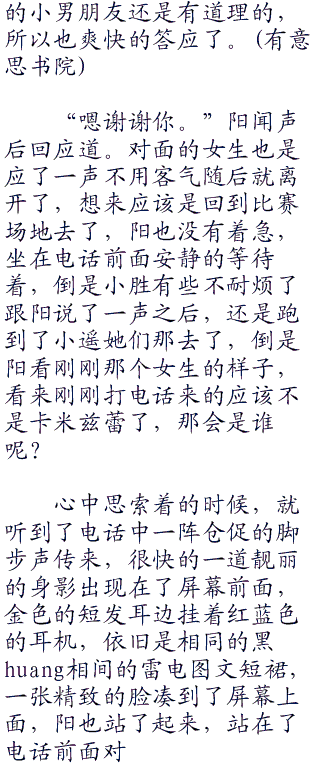 的小男朋友还是有道理的，
所以也爽快的答应了。(有意
思书院)
“嗯谢谢你。”阳闻声
后回应道。对面的女生也是
应了一声不用客气随后就离
开了，想来应该是回到比赛
场地去了，阳也没有着急，
坐在电话前面安静的等待
着，倒是小胜有些不耐烦了
跟阳说了一声之后，还是跑
到了小遥她们那去了，倒是
阳看刚刚那个女生的样子，
看来刚刚打电话来的应该不
是卡米兹蕾了，那会是谁
呢？
心中思索着的时候，就
听到了电话中一阵仓促的脚
步声传来，很快的一道靓丽
的身影出现在了屏幕前面，
金色的短发耳边挂着红蓝色
的耳机，依旧是相同的黑
huang相间的雷电图文短裙，
一张精致的脸凑到了屏幕上
面，阳也站了起来，站在了
电话前面对